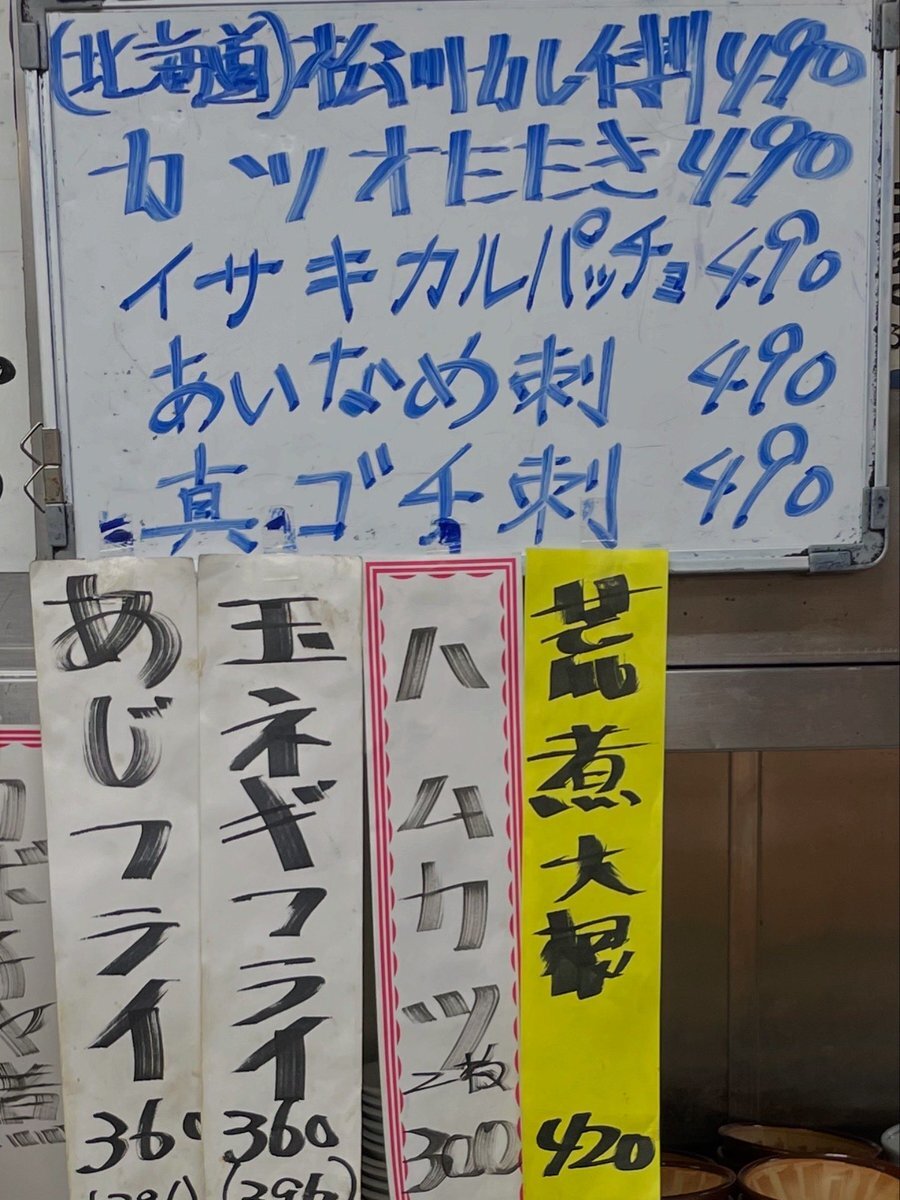 (北海道)松川カレイ刺 490
カツオたたき 490
イサキカルパッチョ 490
あいなめ刺 490
真ゴチ刺 490
あじフライ
360
玉ネギフライ
360
(396)
ハムカツ
2枚
300
荒煮大根
420